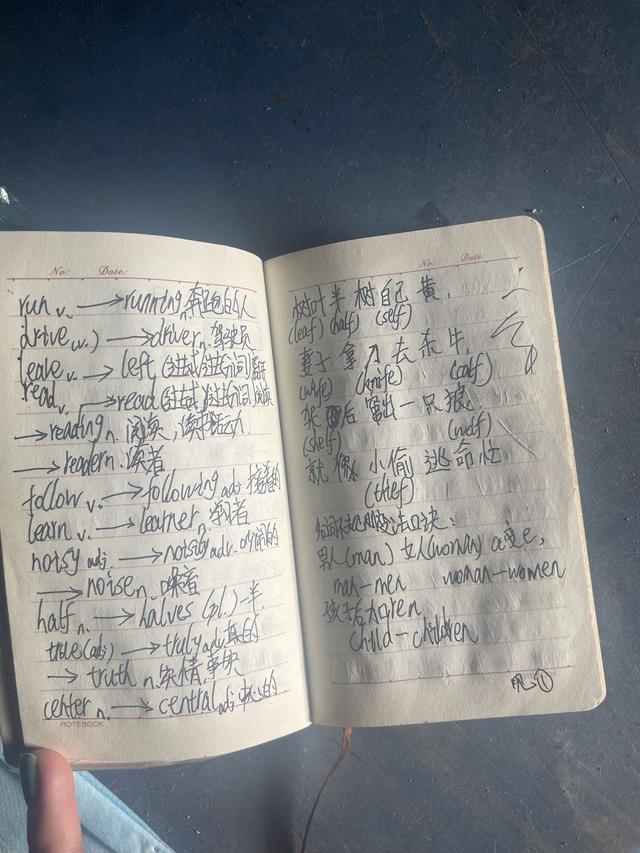 No: Date:
run v. → running n. 奔跑的人
drive (v.) → driver n. 驾驶员
leave v. → left (过去式)过去分词) 离开
read v. → read (过去式)过去分词) 阅读
→ reading n. 阅读, 读书活动
→ reader n. 读者
follow v. → following adj. 接着的
learn v. → learner n. 学习者
noisy adj. → noisily adv. 吵闹的
→ noise n. 噪音
half n. → halves (pl.) 一半
true (adj) → truly adv. 真的
→ truth n. 实情, 事实
center n. → central adj.
NOTEBOOK
No: Date:
树叶半树自己黄,
(leaf) (half) (self)
妻子拿刀去杀牛
(wife) (knife) (calf)
架后窜出一只狼
(shelf) (wolf)
就像小偷逃命忙
(thief)
口诀:
男人(man) 女人(woman) a变e,
man-men woman-women
孩子后加ren
child-children